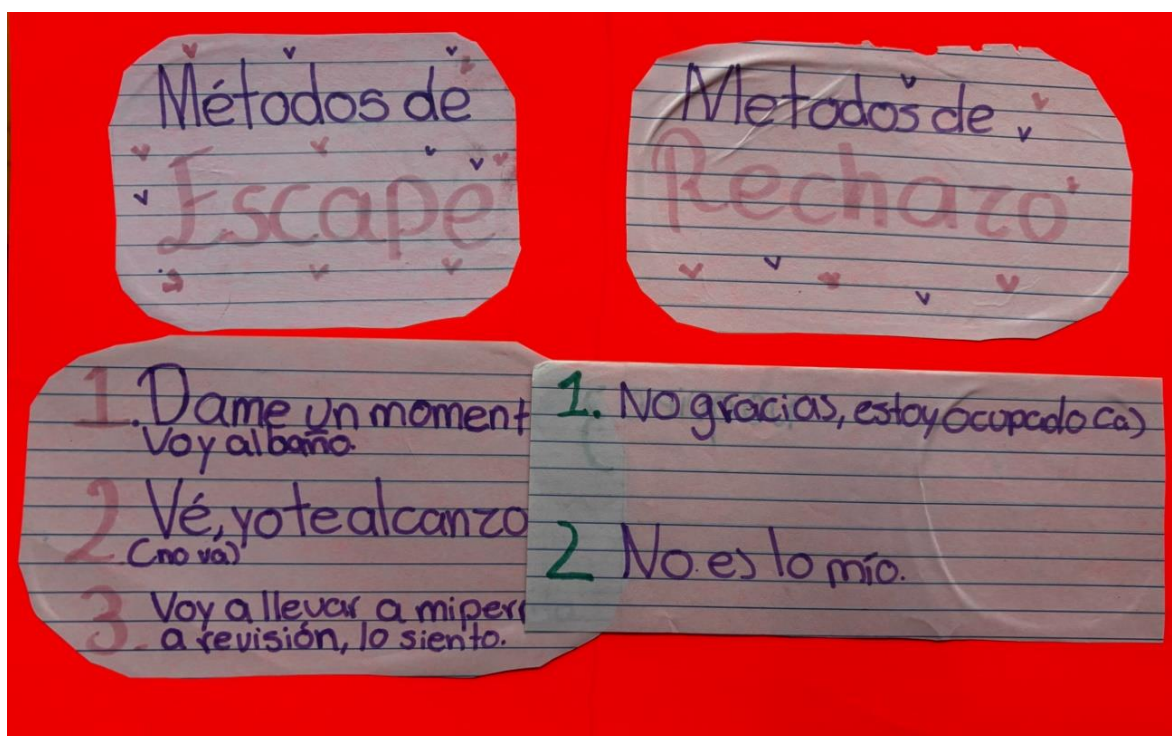 Métodos de
Escape
Metodos de
Rechazo
1. Dame un moment
Voy al baño.
2 Vé, yo te alcanzo
(no va)
3. Voy a llevar a mi perr
a revisión, lo siento.
1. No gracias, estoy ocupado (a)
2 No es lo mío.